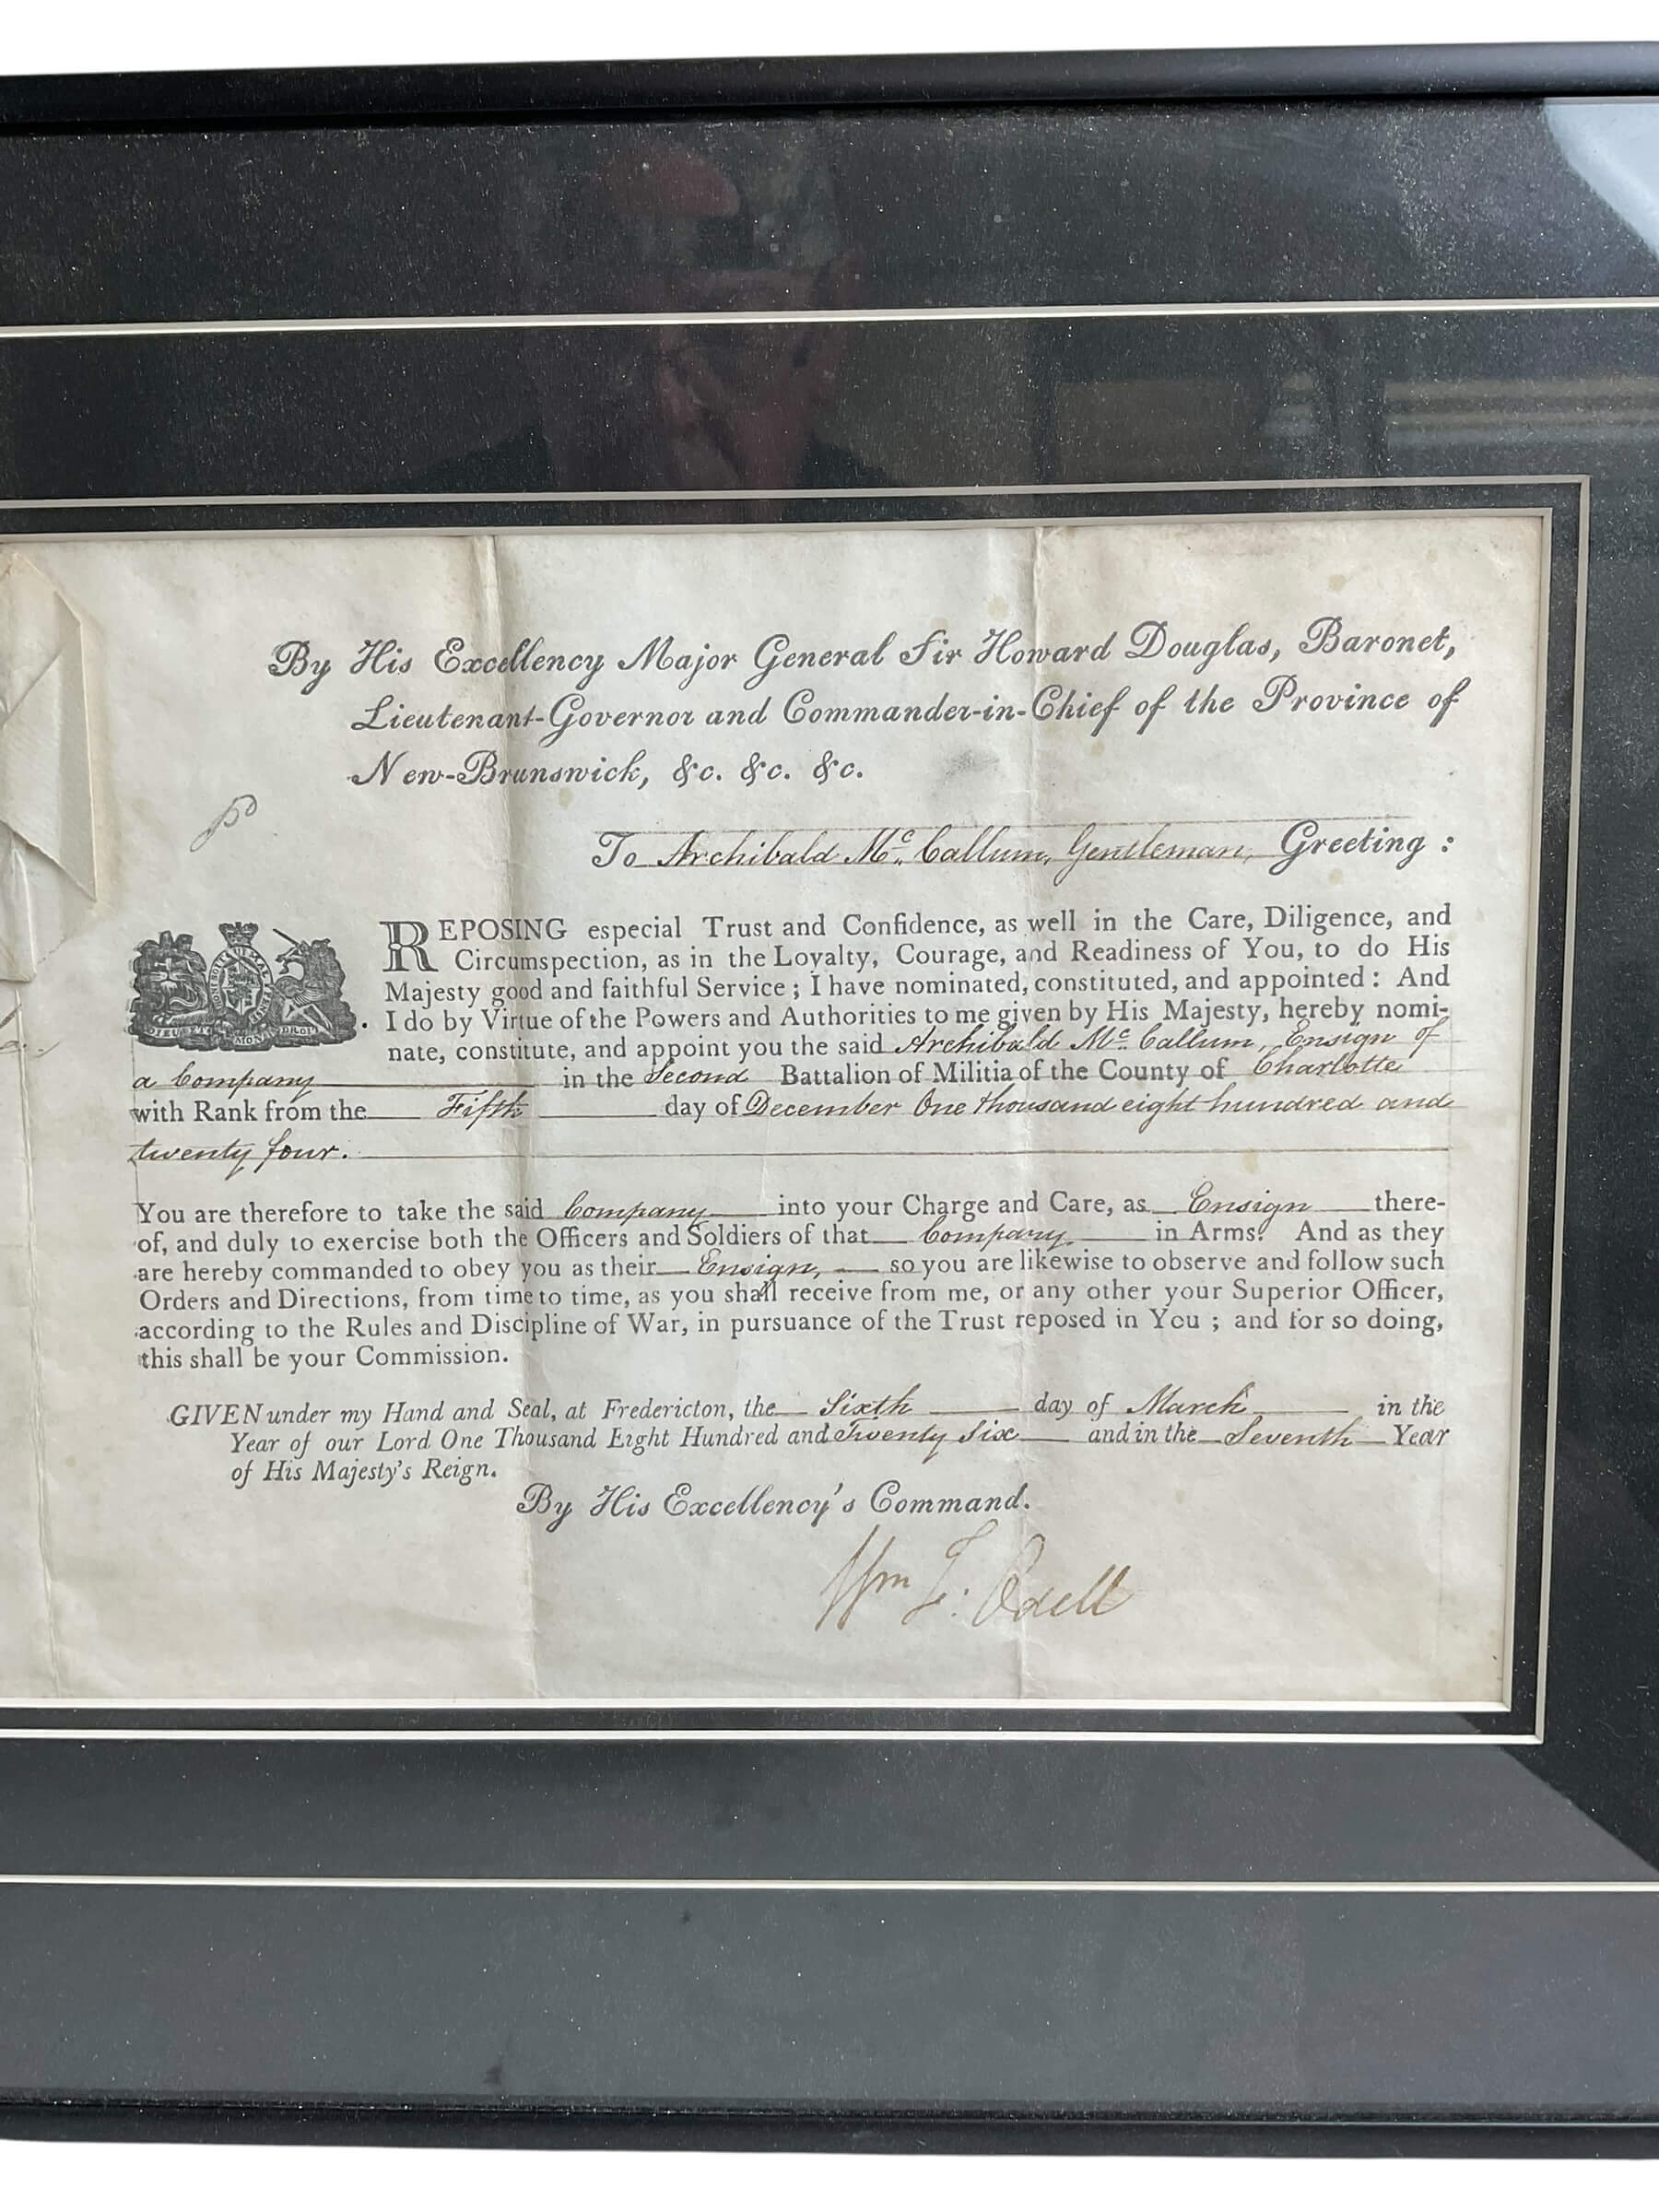 By His Excellency Major General Sir Howard Douglas, Baronet,
Lieutenant-Governor and Commander-in-Chief of the Province of
New-Brunswick, &c. &c. &c.
To Archibald Mc. Callum, Gentleman, Greeting :
REPOSING especial Trust and Confidence, as well in the Care, Diligence, and
Circumspection, as in the Loyalty, Courage, and Readiness of You, to do His
Majesty good and faithful Service ; I have nominated, constituted, and appointed : And
I do by Virtue of the Powers and Authorities to me given by His Majesty, hereby nomi-
nate, constitute, and appoint you the said Archibald Mc. Callum, Ensign of
a Company in the Second Battalion of Militia of the County of Charlotte
with Rank from the Fifth day of December One thousand eight hundred and
twenty four.
You are therefore to take the said Company into your Charge and Care, as Ensign there-
of, and duly to exercise both the Officers and Soldiers of that Company in Arms. And as they
are hereby commanded to obey you as their Ensign, so you are likewise to observe and follow such
Orders and Directions, from time to time, as you shall receive from me, or any other your Superior Officer,
according to the Rules and Discipline of War, in pursuance of the Trust reposed in You ; and for so doing,
this shall be your Commission.
GIVEN under my Hand and Seal, at Fredericton, the Sixth day of March in the
Year of our Lord One Thousand Eight Hundred and Twenty Six and in the Seventh Year
of His Majesty's Reign.
By His Excellency's Command.
Wm F. Odell